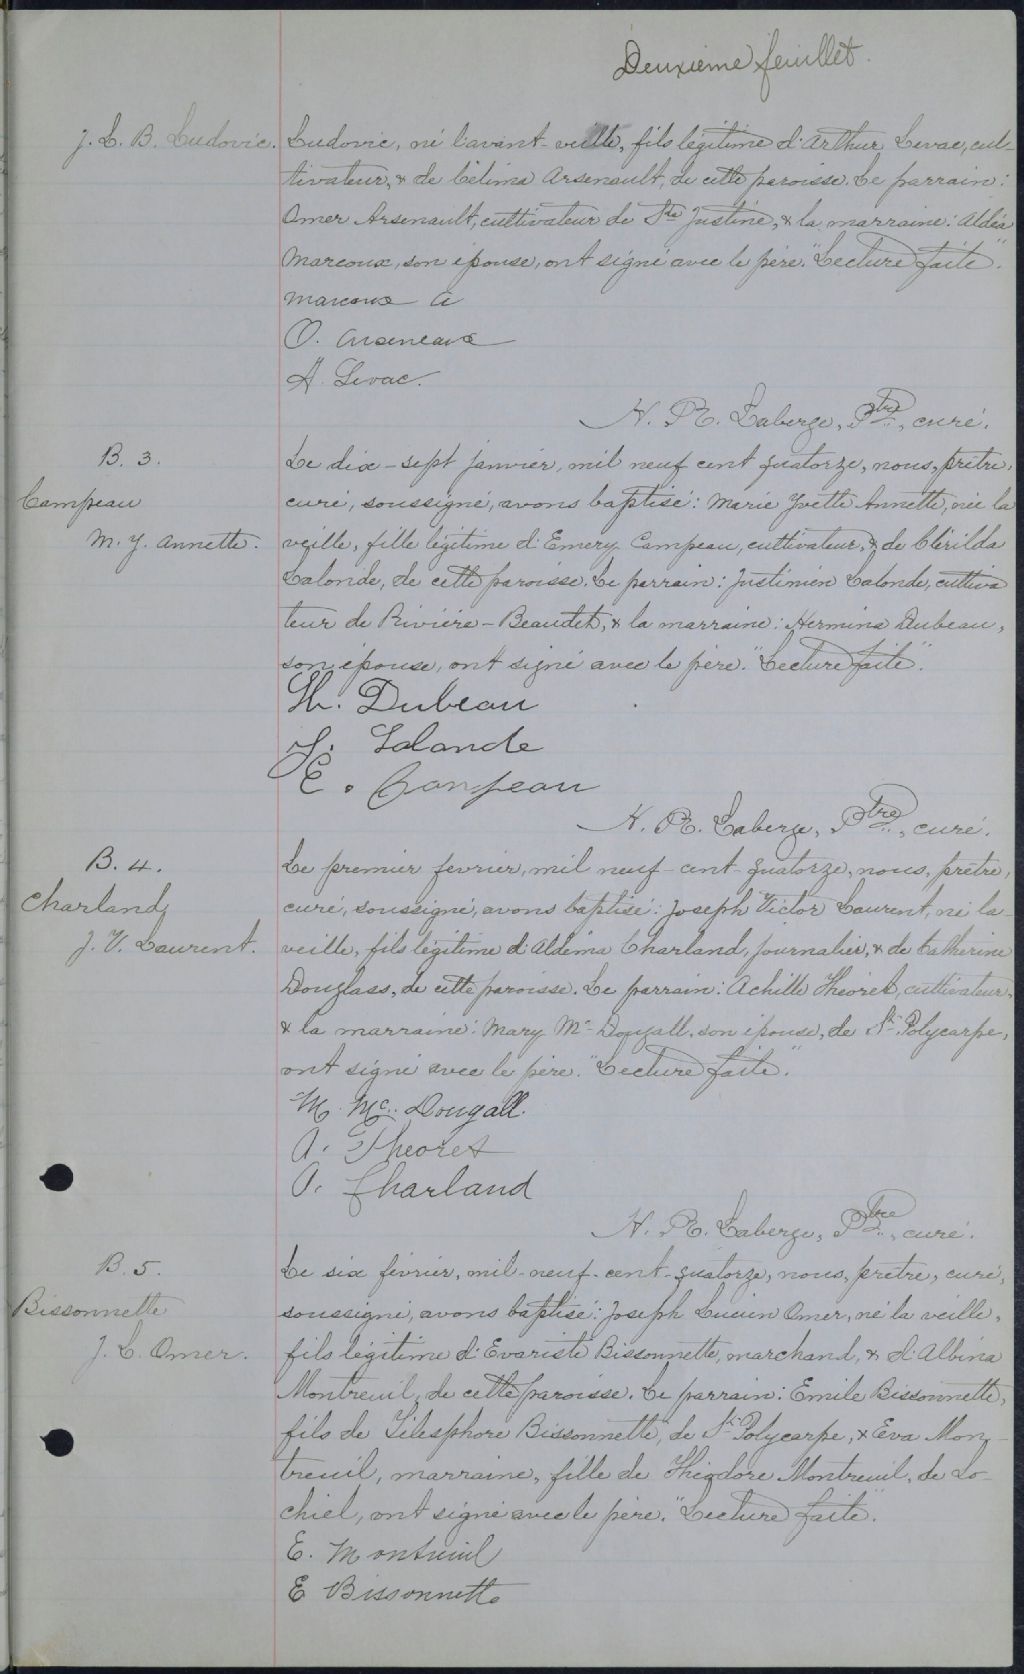 Deuxième feuillet.
J. L. B. Ludovic.
Ludovic, né l'avant-veille, fils légitime d'Arthur Levac, cul-
tivateur, & de Célima Arsenault, de cette paroisse. Le parrain:
Omer Arsenault, cultivateur de Ste Justine, & la marraine: Aldéa
Marcoux, son épouse, ont signé avec le père. "Lecture faite".
Marcoux A
O. Arseneaux
A. Levac.
N. R. Laberge, Ptre, curé.
B. 3.
Campeau
M. Y. Annette.
Le dix-sept janvier, mil neuf cent quatorze, nous, prêtre,
curé, soussigné, avons baptisé: Marie Yvette Annette, née la
veille, fille légitime d'Emery Campeau, cultivateur, & de Clérilda
Lalonde, de cette paroisse. Le parrain: Justinien Lalonde, cultiva
teur de Rivière-Beaudet, & la marraine: Hermina Dubeau,
son épouse, ont signé avec le père. "Lecture faite".
H. Dubeau
J. Lalonde
E. Campeau
N. R. Laberge, Ptre, curé.
B. 4.
Charland
J. V. Laurent.
Le premier février, mil neuf-cent-quatorze, nous, prêtre,
curé, soussigné, avons baptisé: Joseph Victor Laurent, né la
veille, fils légitime d'Aldéma Charland, journalier, & de Catherine
Douglass, de cette paroisse. Le parrain: Achille Théoret, cultivateur,
& la marraine: Mary Mc Dougall, son épouse, de St Polycarpe,
ont signé avec le père. "Lecture faite".
M. Mc. Dougall.
A. Theoret
A. Charland
N. R. Laberge, Ptre, curé.
B. 5.
Bissonnette
J. L. Omer.
Le six février, mil-neuf-cent-quatorze, nous, prêtre, curé,
soussigné, avons baptisé: Joseph Lucien Omer, né la veille,
fils légitime d'Evariste Bissonnette, marchand, & d'Albina
Montreuil, de cette paroisse. Le parrain: Emile Bissonnette,
fils de Télesphore Bissonnette, de St Polycarpe, & Eva Mon-
treuil, marraine, fille de Théodore Montreuil, de Lo-
chiel, ont signé avec le père. "Lecture faite".
E. Montreuil
E Bissonnette